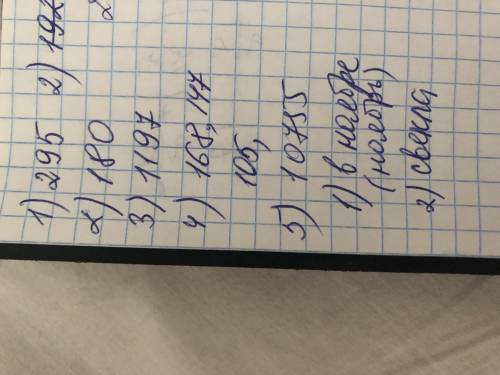 1) 295 2) 192
2) 180 2
3) 1197
4) 168, 147
105,
5) 10755
1) в ноябре
(ноябрь)
2) свекла